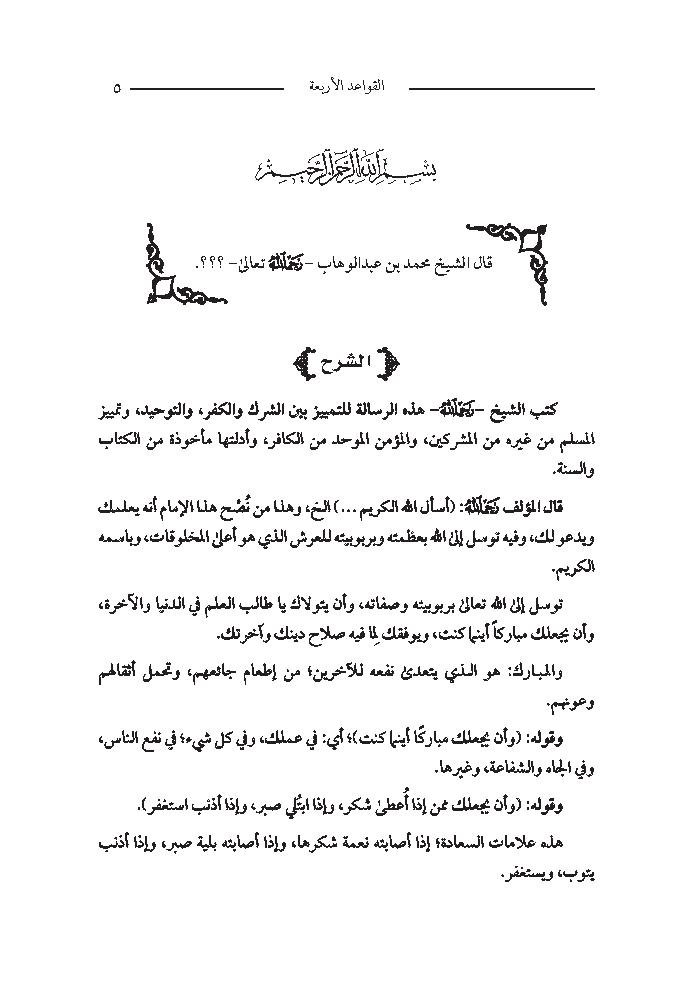 القواعد الأربعة ٥
بسم الله الرحمن الرحيم
قال الشيخ محمد بن عبدالوهاب -رَحِمَهُ اللهُ تعالىٰ- ؟؟؟.
الشرح
كتب الشيخ -رَحِمَهُ اللهُ- هذه الرسالة للتمييز بين الشرك والكفر، والتوحيد، وتمييز
المسلم من غيره من المشركين، والمؤمن الموحد من الكافر، وأدلتها مأخوذة من الكتاب
والسنة.
قال المؤلف رَحِمَهُ اللهُ: (أسأل الله الكريم ...) الخ، وهذا من نُصْح هذا الإمام أنه يعلمك
ويدعو لك، وفيه توسل إلىٰ الله بعظمته وبربوبيته للعرش الذي هو أعلىٰ المخلوقات، وباسمه
الكريم.
توسل إلىٰ الله تعالىٰ بربوبيته وصفاته، وأن يتولاك يا طالب العلم في الدنيا والآخرة،
وأن يجعلك مباركاً أينما كنت، ويوفقك لِما فيه صلاح دينك وآخرتك.
والمبارك: هو الذي يتعدىٰ نفعه للآخرين؛ من إطعام جائعهم، وتحمل أثقالهم
وعونهم.
وقوله: (وأن يجعلك مباركًا أينما كنت)؛ أي: في عملك، وفي كل شيء؛ في نفع الناس،
وفي الجاه والشفاعة، وغيرها.
وقوله: (وأن يجعلك ممن إذا أُعطىٰ شكر، وإذا ابتُلي صبر، وإذا أذنب استغفر).
هذه علامات السعادة؛ إذا أصابته نعمة شكرها، وإذا أصابته بلية صبر، وإذا أذنب
يتوب، ويستغفر.